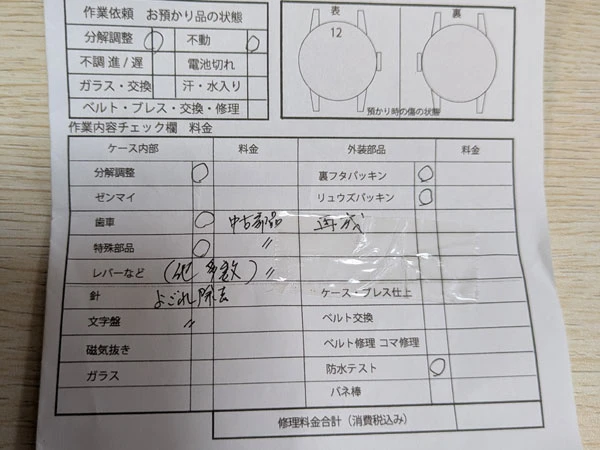 作業依頼 お預かり品の状態
分解調整 ○ 不動 ○
不調 進/遅 電池切れ
ガラス・交換 汗・水入り
ベルト・ブレス・交換・修理
表 裏
12
預かり時の傷の状態
作業内容チェック欄 料金
ケース内部 料金 外装部品 料金
分解調整 ○ 裏フタパッキン ○
ゼンマイ リュウズパッキン ○
歯車 ○ 中古部品 再成
特殊部品 ○ 〃
レバーなど (他 多数) 〃
針 よごれ除去 ケース・ブレス仕上
文字盤 〃 ベルト交換
磁気抜き ベルト修理 コマ修理
ガラス 防水テスト ○
バネ棒
修理料金合計(消費税込み)